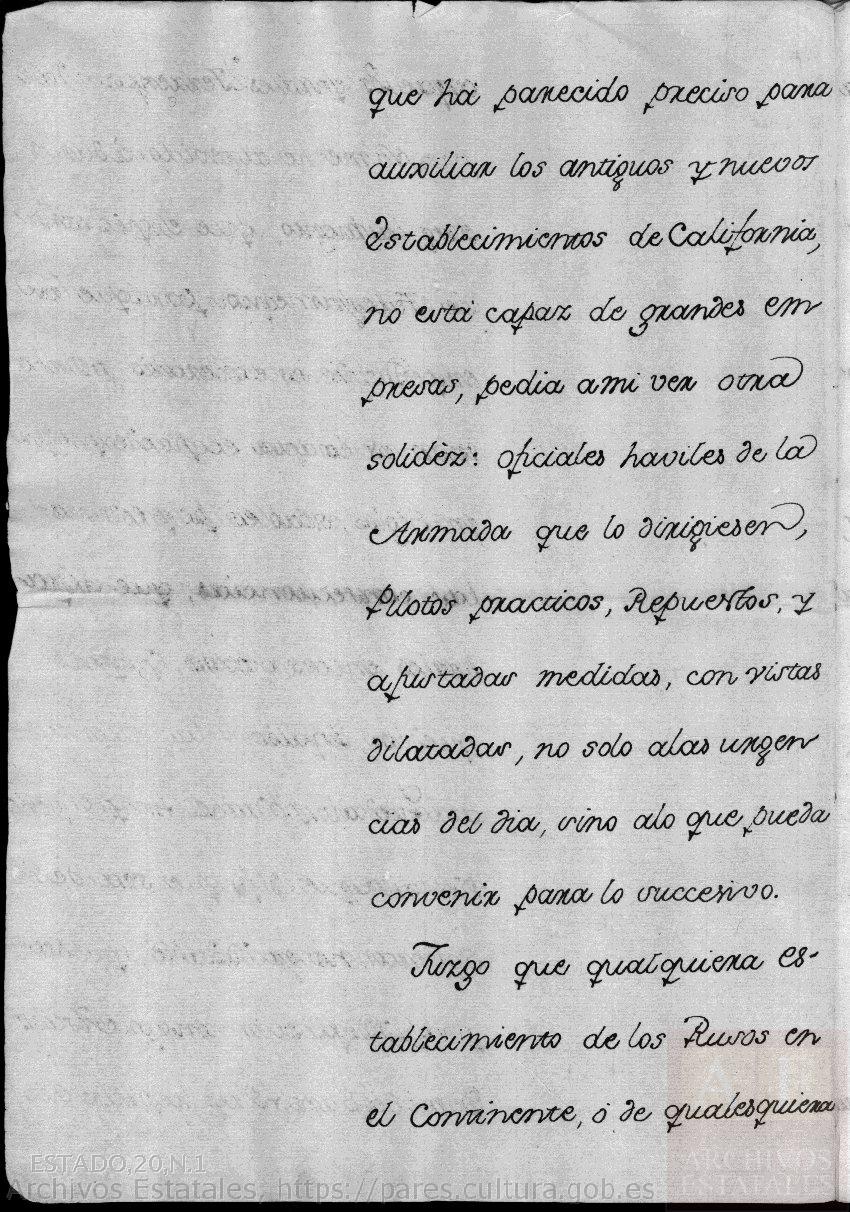 que ha parecido preciso para
auxiliar los antiguos y nuevos
establecimientos de California,
no está capaz de grandes em
presas, pedia ami ver otra
solidèz: oficiales haviles de la
Armada que lo dirigiesen,
Pilotos practicos, Repuestos, y
ajustadas medidas, con vistas
dilatadas, no solo alas urgen
cias del dia, sino alo que pueda
convenir para lo succesivo.
Juzgo que qualquiera es-
tablecimiento de los Rusos en
el Continente, ó de qualesquiera
ESTADO,20,N.1
Archivos Estatales, https://pares.cultura.gob.es
ARCHIVOS
ESTATALES